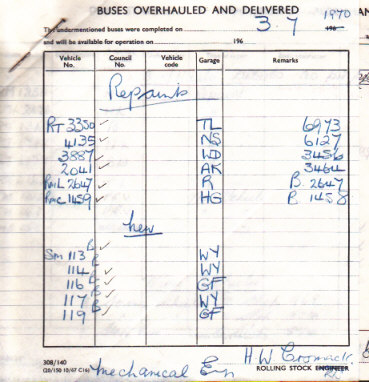 BUSES OVERHAULED AND DELIVERED
The undermentioned buses were completed on 3.7 1970 196
and will be available for operation on 196
Vehicle No. Council No. Vehicle code Garage Remarks
Repaints
RT 3350 ✓ TL 6973
4135 ✓ NS 6127
3887 ✓ WD 3456
2041 ✓ AK 3464
RML 2647 ✓ R B. 2647
RMC 1459 ✓ HG B. 1458
New
SM 113 B ✓ WY
114 B ✓ WY
116 B ✓ GF
117 B ✓ WY
119 B ✓ GF
308/140
(20/150 10/67 C16) Mechanical Eng H W
ROLLING STOCK ENGINEER